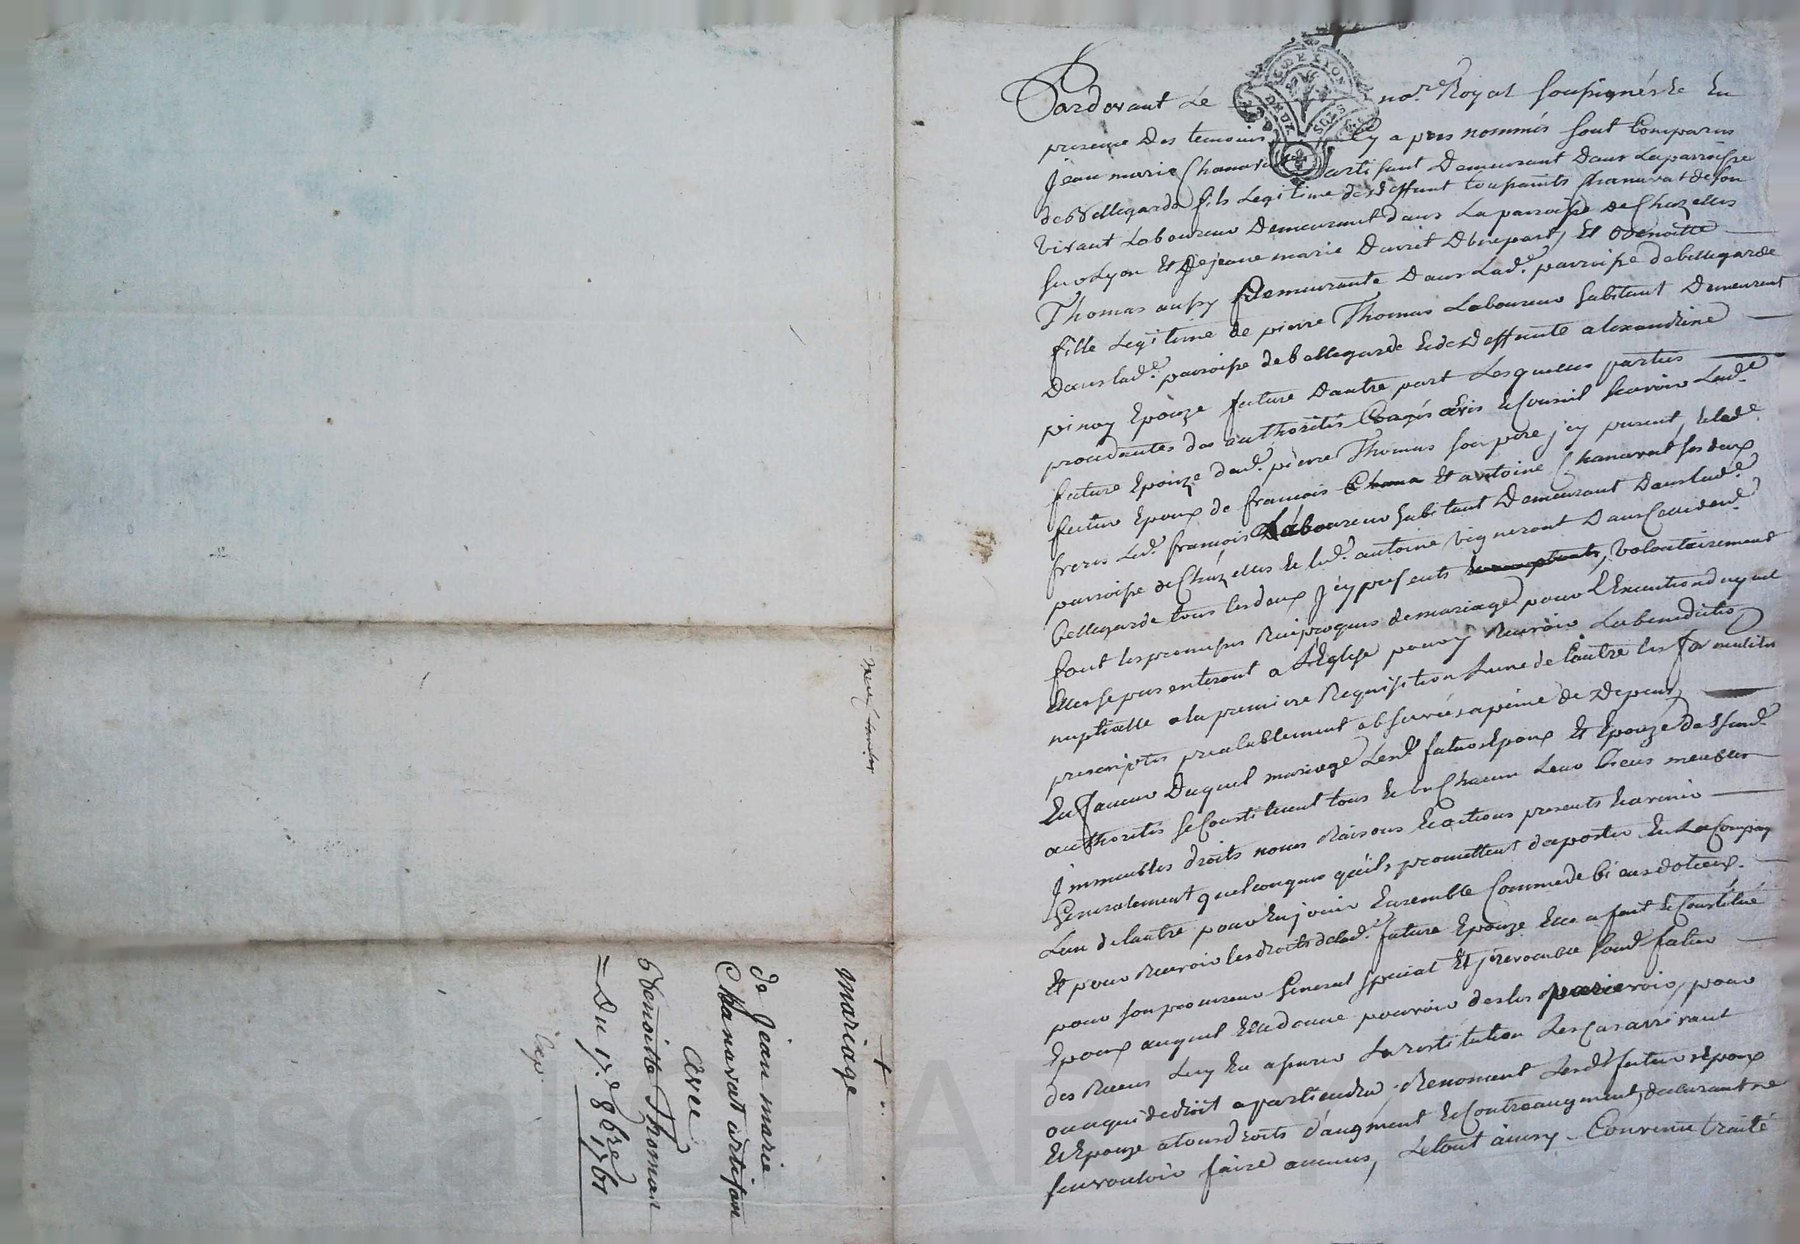 Pardevant Le no.re Royal soussignés Et En
presence des temoins cy apres nommés sont Comparus
jean marie Chanavat artisant Demeurant Dans Laparroisse
de bellegarde fils Legitime de deffunt toupaints Chanavat de son
vivant Laboureur Demeurant dans La parroisse de Chazelles
sur Lyon Et de jeanne marie Duvret Dunepart, Et Benoitte
Thomas aussy Demeurante Dans Lad.e parroisse de bellegarde
fille Legitime de pierre Thomas Laboureur habitant Demeurant
Dans lad.e parroisse de bellegarde Et de deffunte alexandrine
pinay Epouze future Dautre part Lesquelles parties
procedantes des authorités Congés avis Et Conseil scavoir Lad.e
future Epouze dud. pierre Thomas son pere jcy present, Et led.
futur Epoux de francois Chana Et antoine Chanavat ses deux
freres Led. francois Laboureur habitant Demeurant Dans lad.e
parroisse de Chazelles Et led. antoine vigneront Dans Celle de
bellegarde tous les deux jcy presents Et acceptants, volontairement
font les promesses Reciproques de mariage pour L'Execution duquel
Elles se presenteront a L'Eglise pour y Recevoir La benediction
nuptialle a la premiere Requisition Lune de Lautre les formalités
prescriptes prealablement observées a peine de Depens,
En faveur Duquel mariage Lesd. futurs Epoux Et Epouze de Susd.
authorités se Constituent tous Et un Chacun Leur biens meubles
jmmeubles droits noms Raisons Et actions presents Et avenir
Generalement quelconques qu'ils promettent daporter En La Compagnie
Lun de Lautre pour En jouir Ensemble Comme de biens dotaux.
Et pour Recevoir les droits de lad.e future Epouze Elle a fait Et Constitué
pour son procureur General special Et jrrevocable Led. futur
Epoux auquel Elle donne pouvoir de les percevoir, pour
des Receus Luy En apurer La restitution Le Cas arrivant
ou a qui de droit apartiendra. Renoncent Lesd. futurs Epoux
Et Epouze a tous droits d'augment Et Contreaugment, declarant ne
sen vouloir faire aucuns, Le tout ainsy Convenu traité
mariage
de jean marie
Chanavat artisan
avec
Benoitte Thomas
= Du 17.e 8bre 1761